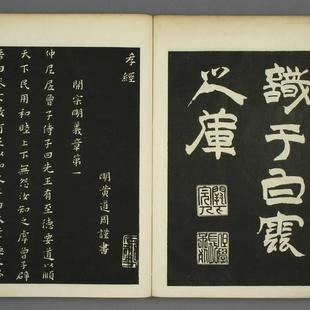 識于白雲
之庫
孝經
開宗明義章第一
明黃道周謹書
仲尼居曾子侍子曰先王有至德要道以順
天下民用和睦上下無怨汝知之虖曾子辟